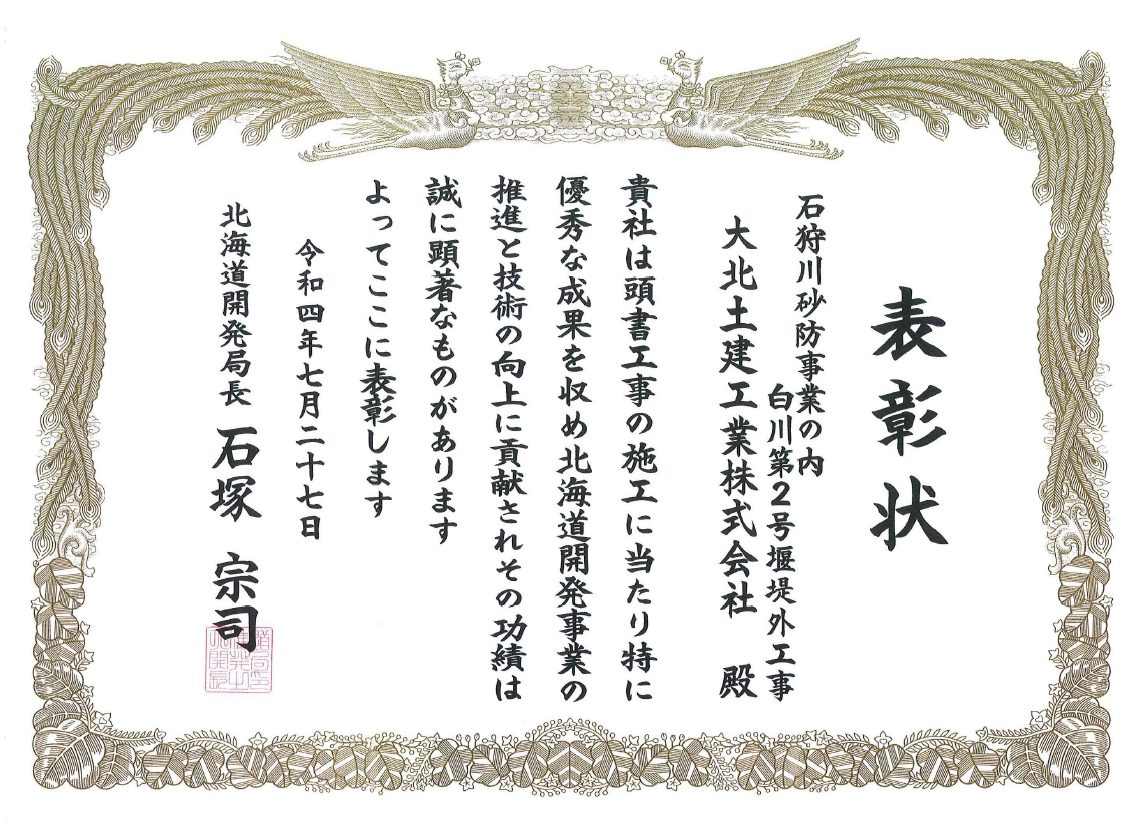 表彰状
石狩川砂防事業の内
白川第2号堰堤外工事
大北土建工業株式会社 殿
貴社は頭書工事の施工に当たり特に
優秀な成果を収め北海道開発事業の
推進と技術の向上に貢献されその功績は
誠に顕著なものがあります
よってここに表彰します
令和四年七月二十七日
北海道開発局長 石塚 宗司